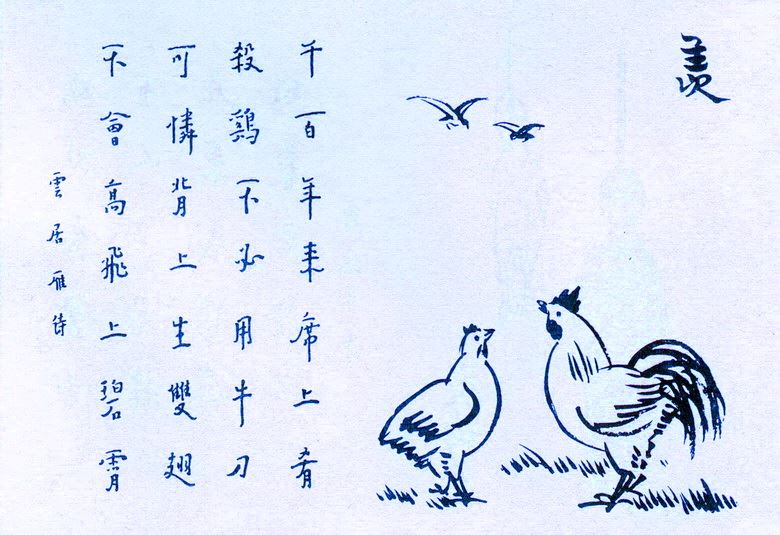 羡
千百年来席上肴
殺鷄不必用牛刀
可憐背上生雙翅
不會高飛上碧霄
雲居雁诗